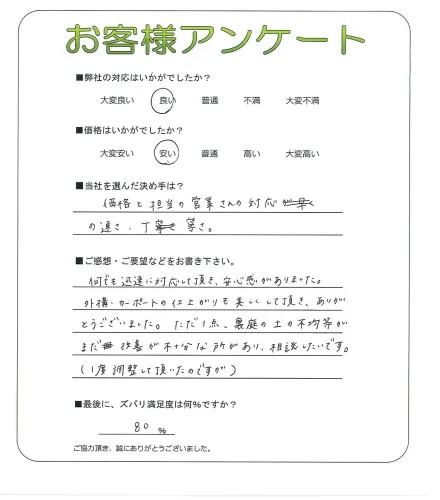 お客様アンケート
■弊社の対応はいかがでしたか？
大変良い 良い 普通 不満 大変不満
■価格はいかがでしたか？
大変安い 安い 普通 高い 大変高い
■当社を選んだ決め手は？
価格と担当の営業さんの対応
の速さ、丁寧さ。
■ご感想・ご要望などをお書き下さい。
何でも迅速に対応して頂き、安心感がありました。
外構・カーポートの仕上がりも美しくして頂き、ありがと
とうございました。ただ1点、裏庭の土の不均等が
まだ改善が不十分な所があり、相談したいです。
(1度調整して頂いたのですが)
■最後に、ズバリ満足度は何%ですか？
80 %
ご協力頂き、誠にありがとうございました。